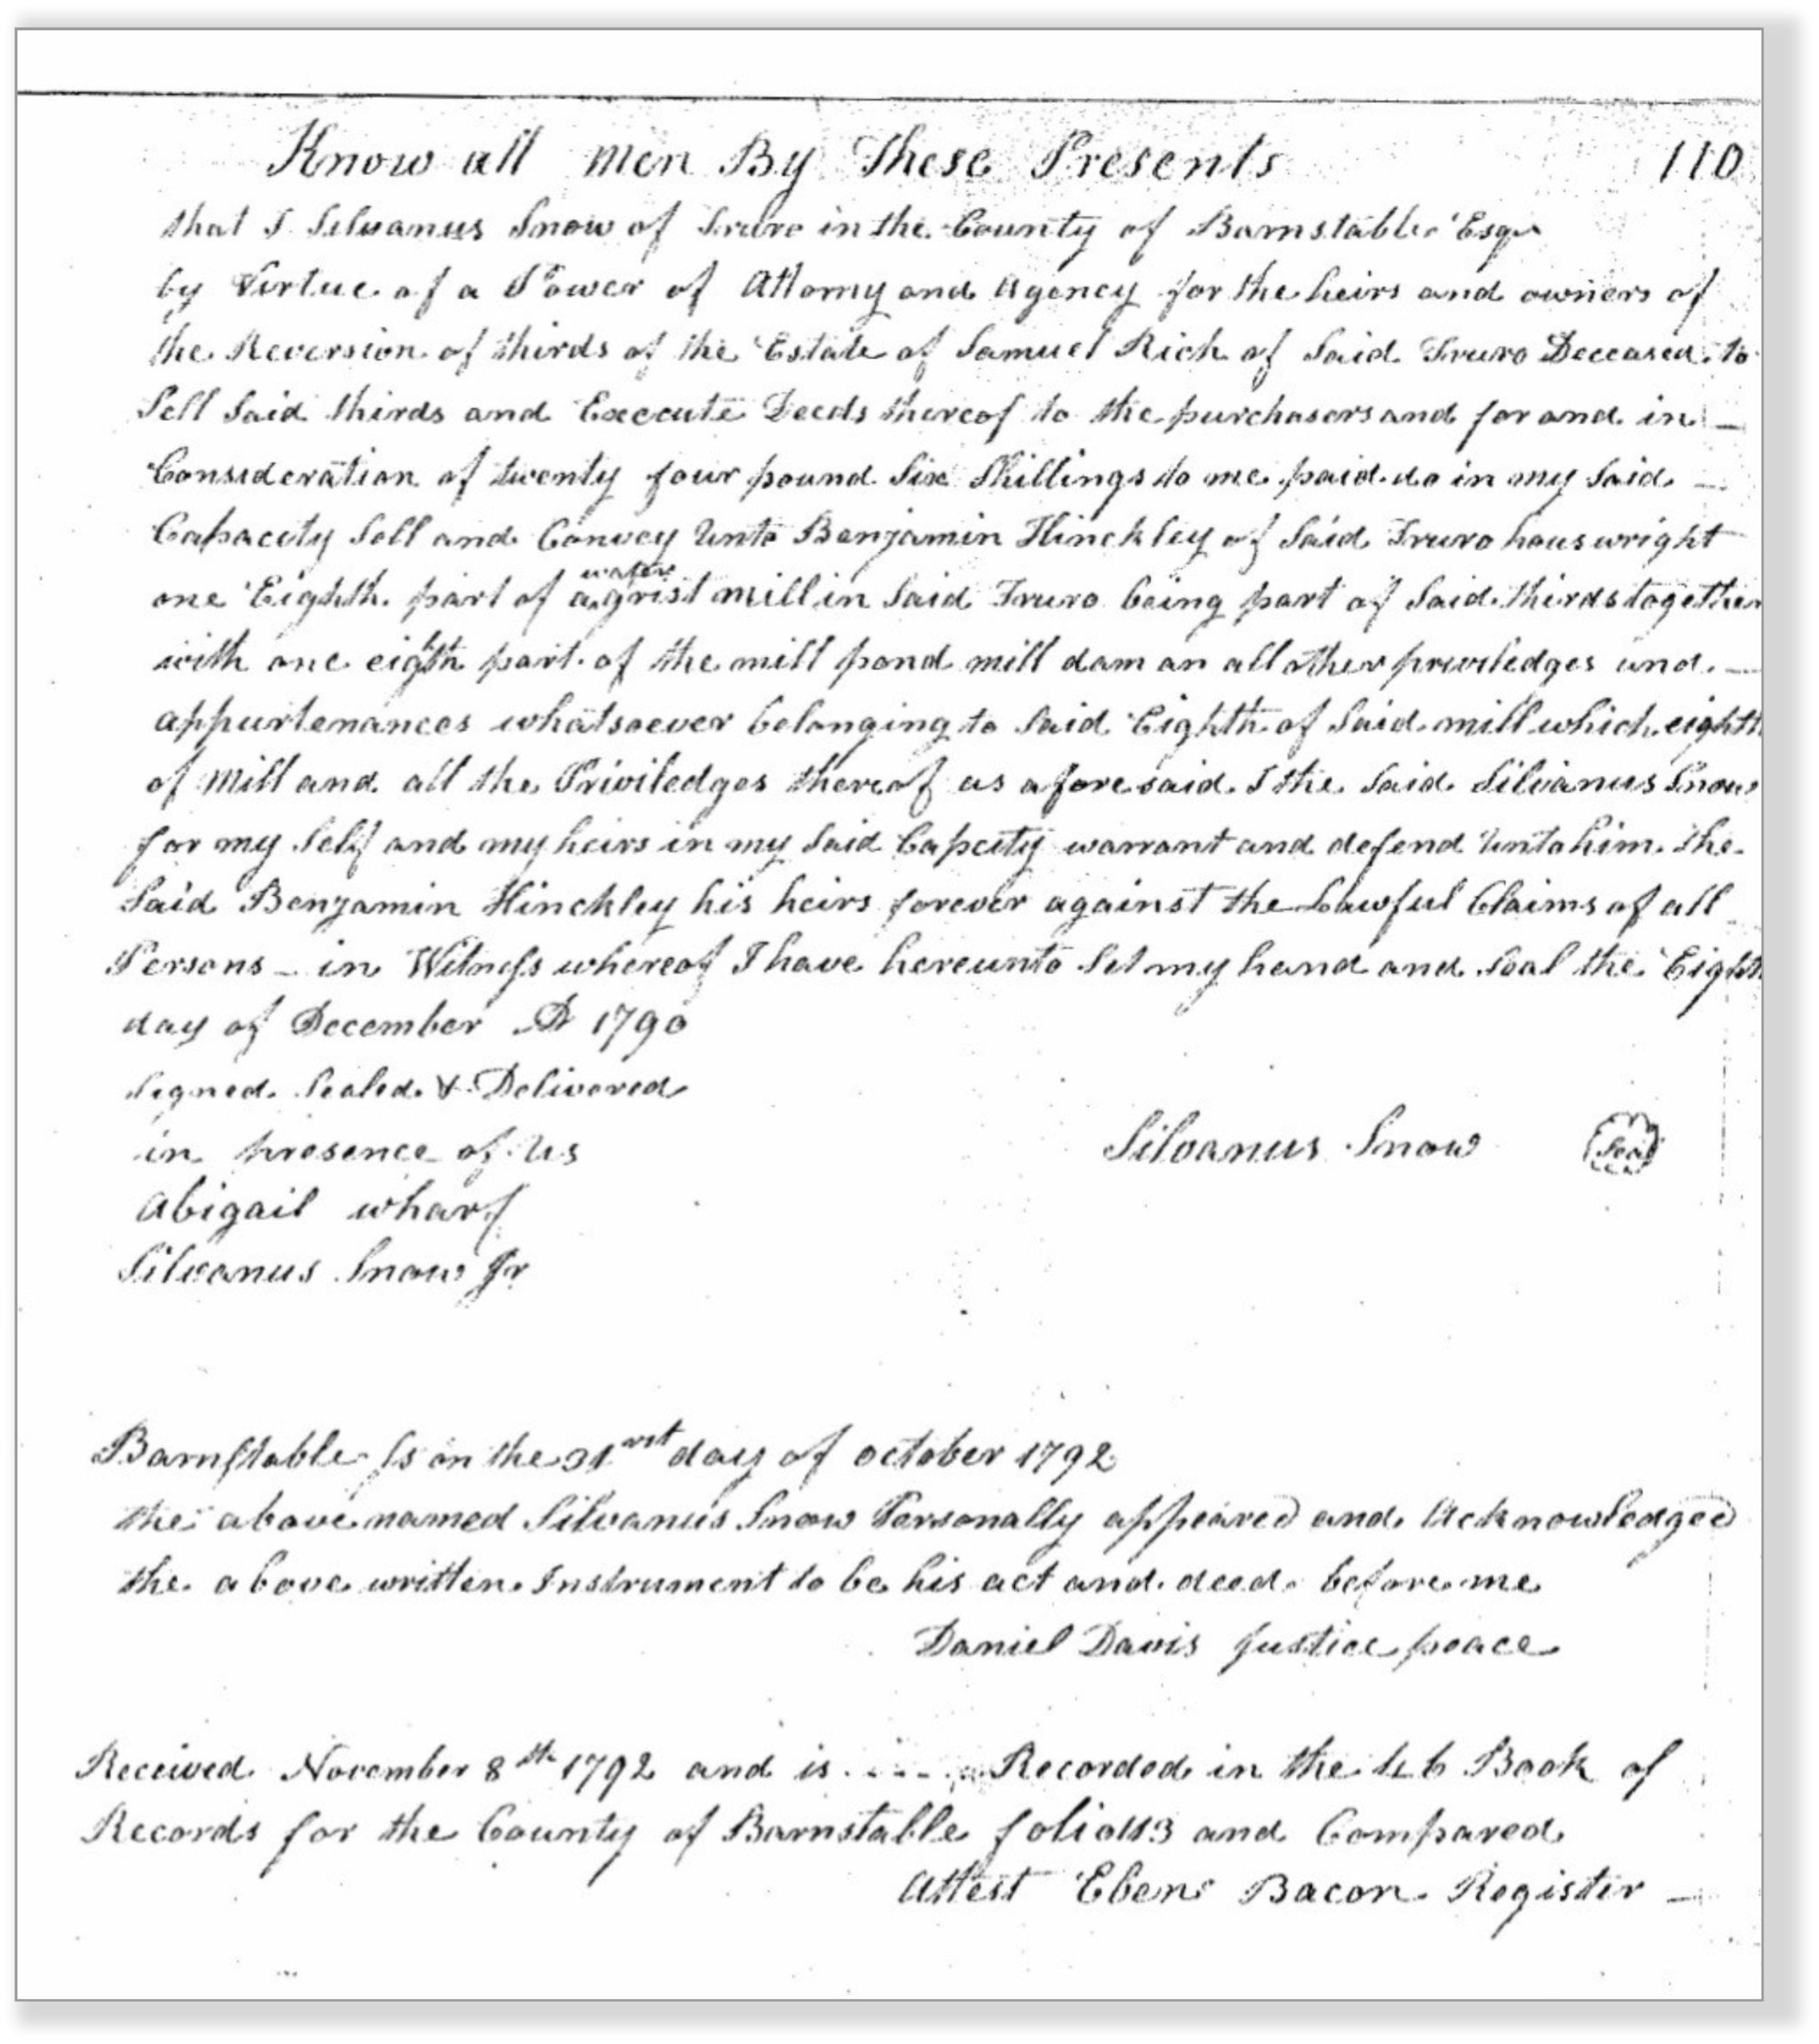 Know all men By These Presents 110
that I Silvanus Snow of Truro in the County of Barnstable Esqr
by Virtue of a Power of Attorny and Agency for the heirs and owners of
the Reversion of thirds of the Estate of Samuel Rich of Said Truro Deceased to
Sell Said thirds and Execute Deeds thereof to the purchasers and for and in
Consideration of twenty four pound Six Shillings to me paid do in my Said
Capacity Sell and Convey Unto Benjamin Hinckley of Said Truro houswright
one Eighth part of a water grist mill in Said Truro being part of Said thirds together
with one eighth part of the mill pond mill dam an all other priviledges and
appurtenances whatsoever belonging to Said Eighth of Said mill which eighth
of Mill and all the Priviledges thereof as afore said I the Said Silvanus Snow
for my Self and my heirs in my Said Capcity warrant and defend Unto him the
Said Benjamin Hinckley his heirs forever against the Lawful Claims of all
Persons - in Witness whereof I have hereunto Set my hand and Seal the Eight
day of December AD 1790
Signed Sealed & Delivered
in presence of Us
Silvanus Snow Seal
Abigail wharf
Silvanus Snow Jr
Barnstable Ss on the 31rst day of october 1792
the above named Silvanus Snow Personally appeared and Acknowledged
the above written Instrument to be his act and deed before me
Daniel Davis Justice peace
Received November 8th 1792 and is Recorded in the Book of
Records for the County of Barnstable folio 113 and Compared
Attest Ebenr Bacon Register